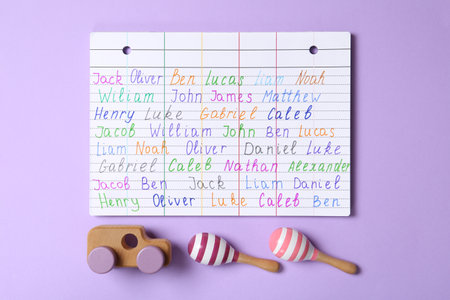 Jack Oliver Ben Lucas Liam Noah
Wiliam John James Matthew
Henry Luke Gabriel Caleb
Jacob William John Ben Lucas
Liam Noah Oliver Daniel Luke
Gabriel Caleb Nathan Alexander
Jacob Ben Jack Liam Daniel
Henry Oliver Luke Caleb Ben